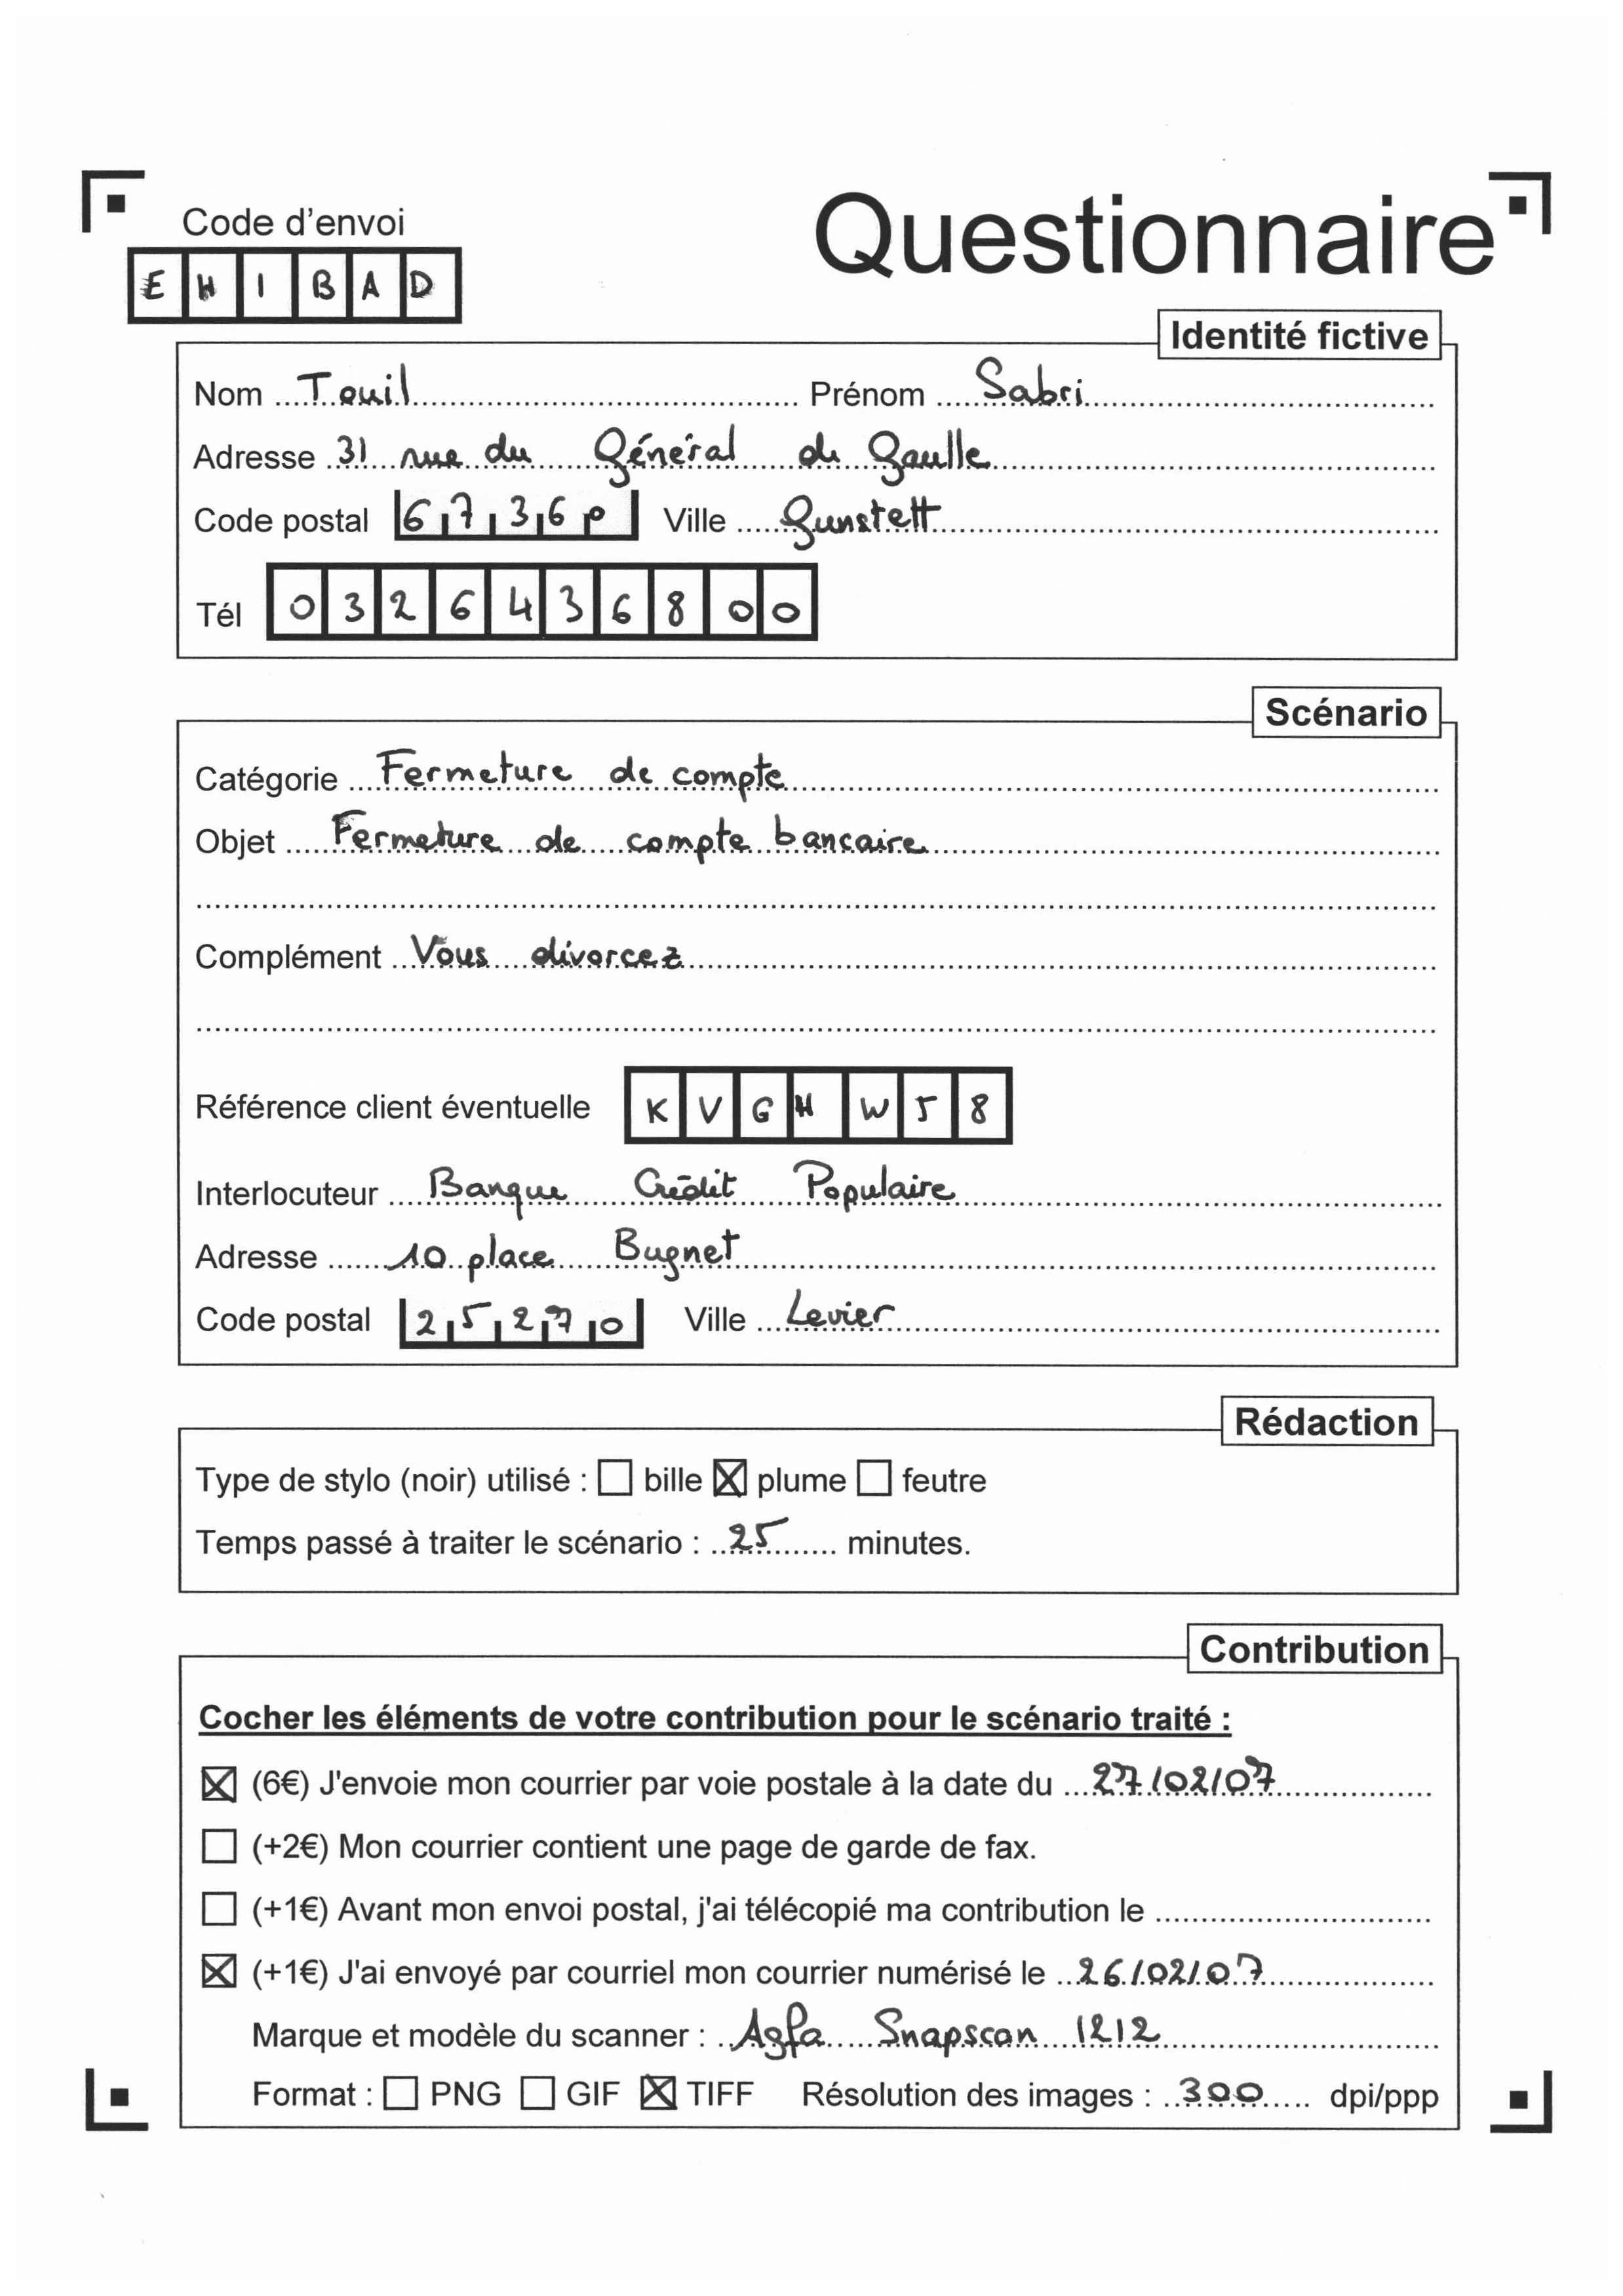 Questionnaire
Code d'envoi
E H I B A D
Identité fictive
Nom Touil Prénom Sabri
Adresse 31 rue du Général de Gaulle
Code postal 6 7 3 6 0 Ville Gunstett
Tél 0 3 2 6 4 3 6 8 0 0
Scénario
Catégorie Fermeture de compte
Objet Fermeture de compte bancaire
Complément Vous divorcez
Référence client éventuelle K V G H W 5 8
Interlocuteur Banque Crédit Populaire
Adresse 10 place Bugnet
Code postal 2 5 2 7 0 Ville Levier
Rédaction
Type de stylo (noir) utilisé : ☐ bille ☒ plume ☐ feutre
Temps passé à traiter le scénario : 25 minutes.
Contribution
Cocher les éléments de votre contribution pour le scénario traité :
☒ (6€) J'envoie mon courrier par voie postale à la date du 27/02/07
☐ (+2€) Mon courrier contient une page de garde de fax.
☐ (+1€) Avant mon envoi postal, j'ai télécopié ma contribution le
☒ (+1€) J'ai envoyé par courriel mon courrier numérisé le 26/02/07
Marque et modèle du scanner : Agfa Snapscan 1212
Format : ☐ PNG ☐ GIF ☒ TIFF Résolution des images : 300 dpi/ppp